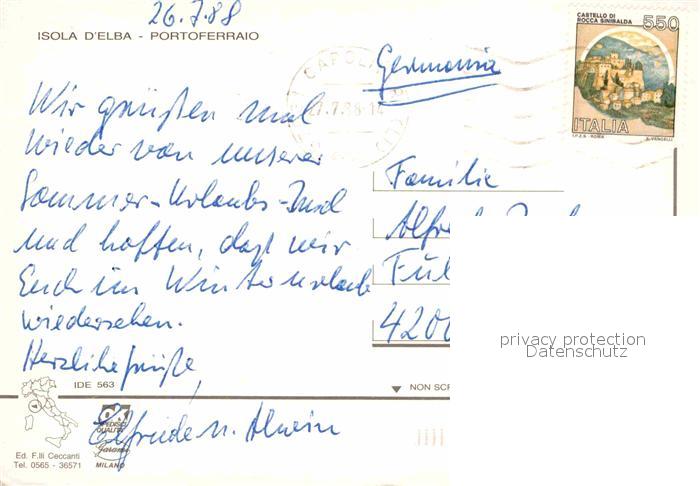 26.7.88
ISOLA D'ELBA - PORTOFERRAIO
CASTELLO DI
ROCCA SINIBALDA
550
ITALIA
I.P.Z.S. - ROMA
E. VANGELLI
CAPOL
7.88-1
Germania
Wir grüßten mal
wieder von unserer
Sommer-Urlaubs-Insel
und hoffen, daß wir
Euch im Winterurlaub
wiedersehen.
Herzliche Grüße,
Elfriede u. Alwin
Familie
Alfre
Ful
420
privacy protection
Datenschutz
IDE 563
NON SCR
Ed. F.lli Ceccanti
Tel. 0565 - 36571
QUALITÀ
Garami
MILANO